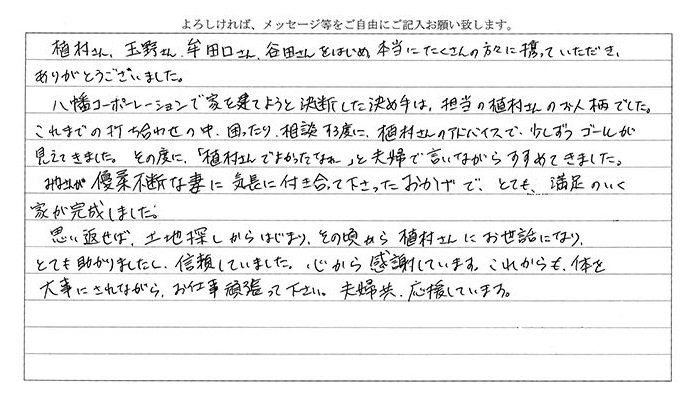 よろしければ、メッセージ等をご自由にご記入お願い致します。
植村さん、玉野さん、牟田口さん、谷田さんをはじめ、本当にたくさんの方々に携っていただき、
ありがとうございました。
八幡コーポレーションで家を建てようと決断した決め手は、担当の植村さんのお人柄でした。
これまでの打ち合わせの中、困ったり、相談する度に、植村さんのアドバイスで、少しずつゴールが
見えてきました。その度に、「植村さんでよかったなぁ」と夫婦で言いながらすすめてきました。
みなさんが優柔不断な妻に気長に付き合って下さったおかげで、とても、満足のいく
家が完成しました。
思い返せば、土地探しからはじまり、その頃から植村さんにお世話になり、
とても助かりましたし、信頼していました。心から感謝しています。これからも、体を
大事にされながら、お仕事頑張って下さい。夫婦共、応援しています。